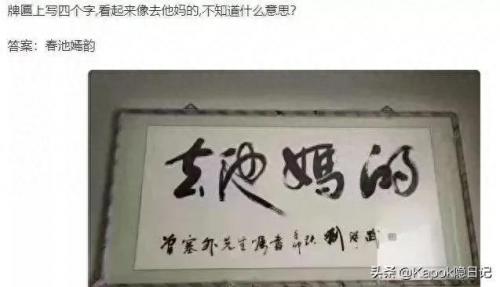 牌匾上写四个字,看起来像去他妈的,不知道什么意思?
答案：春池嫣韵
去池媽的
塞外先生嘱書
头条 @Kapok隐日记